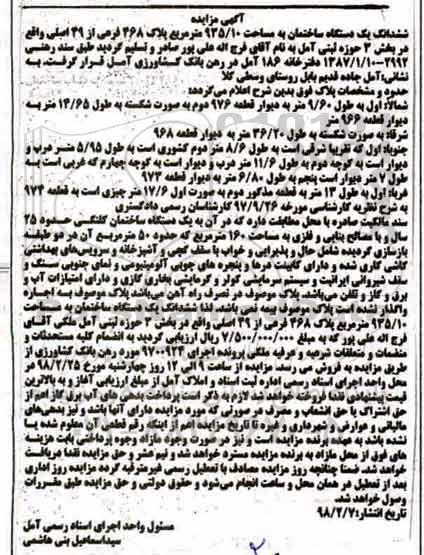 آگهی مزایده
ششدانگ یک دستگاه ساختمان به مساحت ۹۳۵/۱۰ مترمربع پلاک ۴۶۸ فرعی از ۴۹ اصلی واقع
در بخش ۳ حوزه ثبتی آمل به نام آقای فرج اله علی پور صادر و تسلیم گردید طبق سند رهنی
۲۹۹۲-۱۳۸۷/۱/۱۰ دفترخانه ۱۸۶ آمل در رهن بانک کشاورزی آمل قرار گرفت. به
نشانی: آمل جاده قدیم بابل روستای وسطی کلا
حدود و مشخصات پلاک فوق بدین شرح اعلام می‌گردد:
شمالا: اول به طول ۹/۶۰ متر به دیوار قطعه ۹۷۶ دوم به صورت شکسته به طول ۱۴/۶۵ متر به
دیوار قطعه ۹۶۶
شرقا: به صورت شکسته به طول ۳۶/۲۰ متر به دیوار قطعه ۹۶۸
جنوبا: اول که تقریبا شرقی است به طول ۸/۶ متر دوم کشوری است به طول ۵/۹۵ متر درب و
دیوار است به کوچه دوم به طول ۱۱/۶ متر درب و دیوار است به کوچه چهارم که غربی است به
طول ۷ متر دیوار است پنجم به طول ۶/۸۰ متر به دیوار قطعه ۹۷۳
غربا: اول به طول ۱۳ متر به قطعه مذکور دوم به صورت اول ۱۷/۶ متر چیزی است به قطعه ۹۷۳
به شرح نظریه کارشناسی مورخه ۹۷/۹/۲۶ کارشناسان رسمی دادگستری
سند مالکیت صادره با محل مطابقت دارد که در آن به یک دستگاه ساختمان کلنگی حدود ۲۵
سال و با مصالح بنایی و فلزی به مساحت ۱۶۰ مترمربع که حدود ۵۰ مترمربع آن در دو طبقه
بازسازی گردیده شامل حال و پذیرایی و خواب با سقف گچی و آشپزخانه و سرویس‌های بهداشتی
کاشی کاری شده و دارای کابینت درها و پنجره های چوبی آلومینیومی و نمای جنوبی سنگ و
سقف شیروانی ایرانیت و سیستم سرمایشی کولر و گرمایشی بخاری گازی و دارای امتیازات آب و
برق و گاز و تلفن می‌باشد. پلاک موصوف در تصرف راه آهن می‌باشد پلاک موصوف به اجاره
واگذار نشده است پلاک موصوف بیمه نمی باشد. لذا ششدانگ یک دستگاه ساختمان به مساحت
۹۳۵/۱۰ مترمربع پلاک ۴۶۸ فرعی از ۴۹ اصلی واقع در بخش ۳ حوزه ثبتی آمل ملکی آقای
فرج اله علی پور که به مبلغ ۷/۵۰۰/۰۰۰/۰۰۰ ریال ارزیابی گردید به انضمام کلیه مستحدثات و
منضمات و متعلقات شرعیه و عرفیه ملکی پرونده اجرای ۹۷۰۰۹۲۴ مورد رهن بانک کشاورزی از
طریق مزایده به فروش می رسد. مزایده از ساعت ۹ الی ۱۲ روز چهارشنبه مورخ ۹۸/۲/۲۵ در
محل واحد اجرای اسناد رسمی اداره ثبت اسناد و املاک آمل از مبلغ ارزیابی آغاز و به بالاترین
قیمت پیشنهادی نقدا فروخته خواهد شد. لازم به ذکر است پرداخت بدهی های آب برق گاز اعم از
حق اشتراک یا حق انشعاب و مصرف در صورتی که مورد مزایده دارای آنها باشد و نیز بدهی‌های
مالیاتی و عوارض و شهرداری و غیره تا تاریخ مزایده اعم از اینکه رقم قطعی آن معلوم شده یا
نشده باشد به عهده برنده مزایده است و نیز در صورت وجود مازاد وجوه پرداختی بابت هزینه
های فوق از محل مازاد به برنده مزایده مسترد خواهد شد و نیم عشر و حق مزایده نقدا دریافت
خواهد شد. ضمنا چنانچه روز مزایده مصادف با تعطیل رسمی غیرمترقبه گردد مزایده روز اداری
بعد از تعطیل در همان محل و ساعت انجام می‌شود و حقوق دولتی و حق مزایده طبق مقررات
وصول خواهد شد.
تاریخ انتشار: ۹۸/۲/۷
مسئول واحد اجرای اسناد رسمی آمل
سیداسماعیل بنی هاشمی